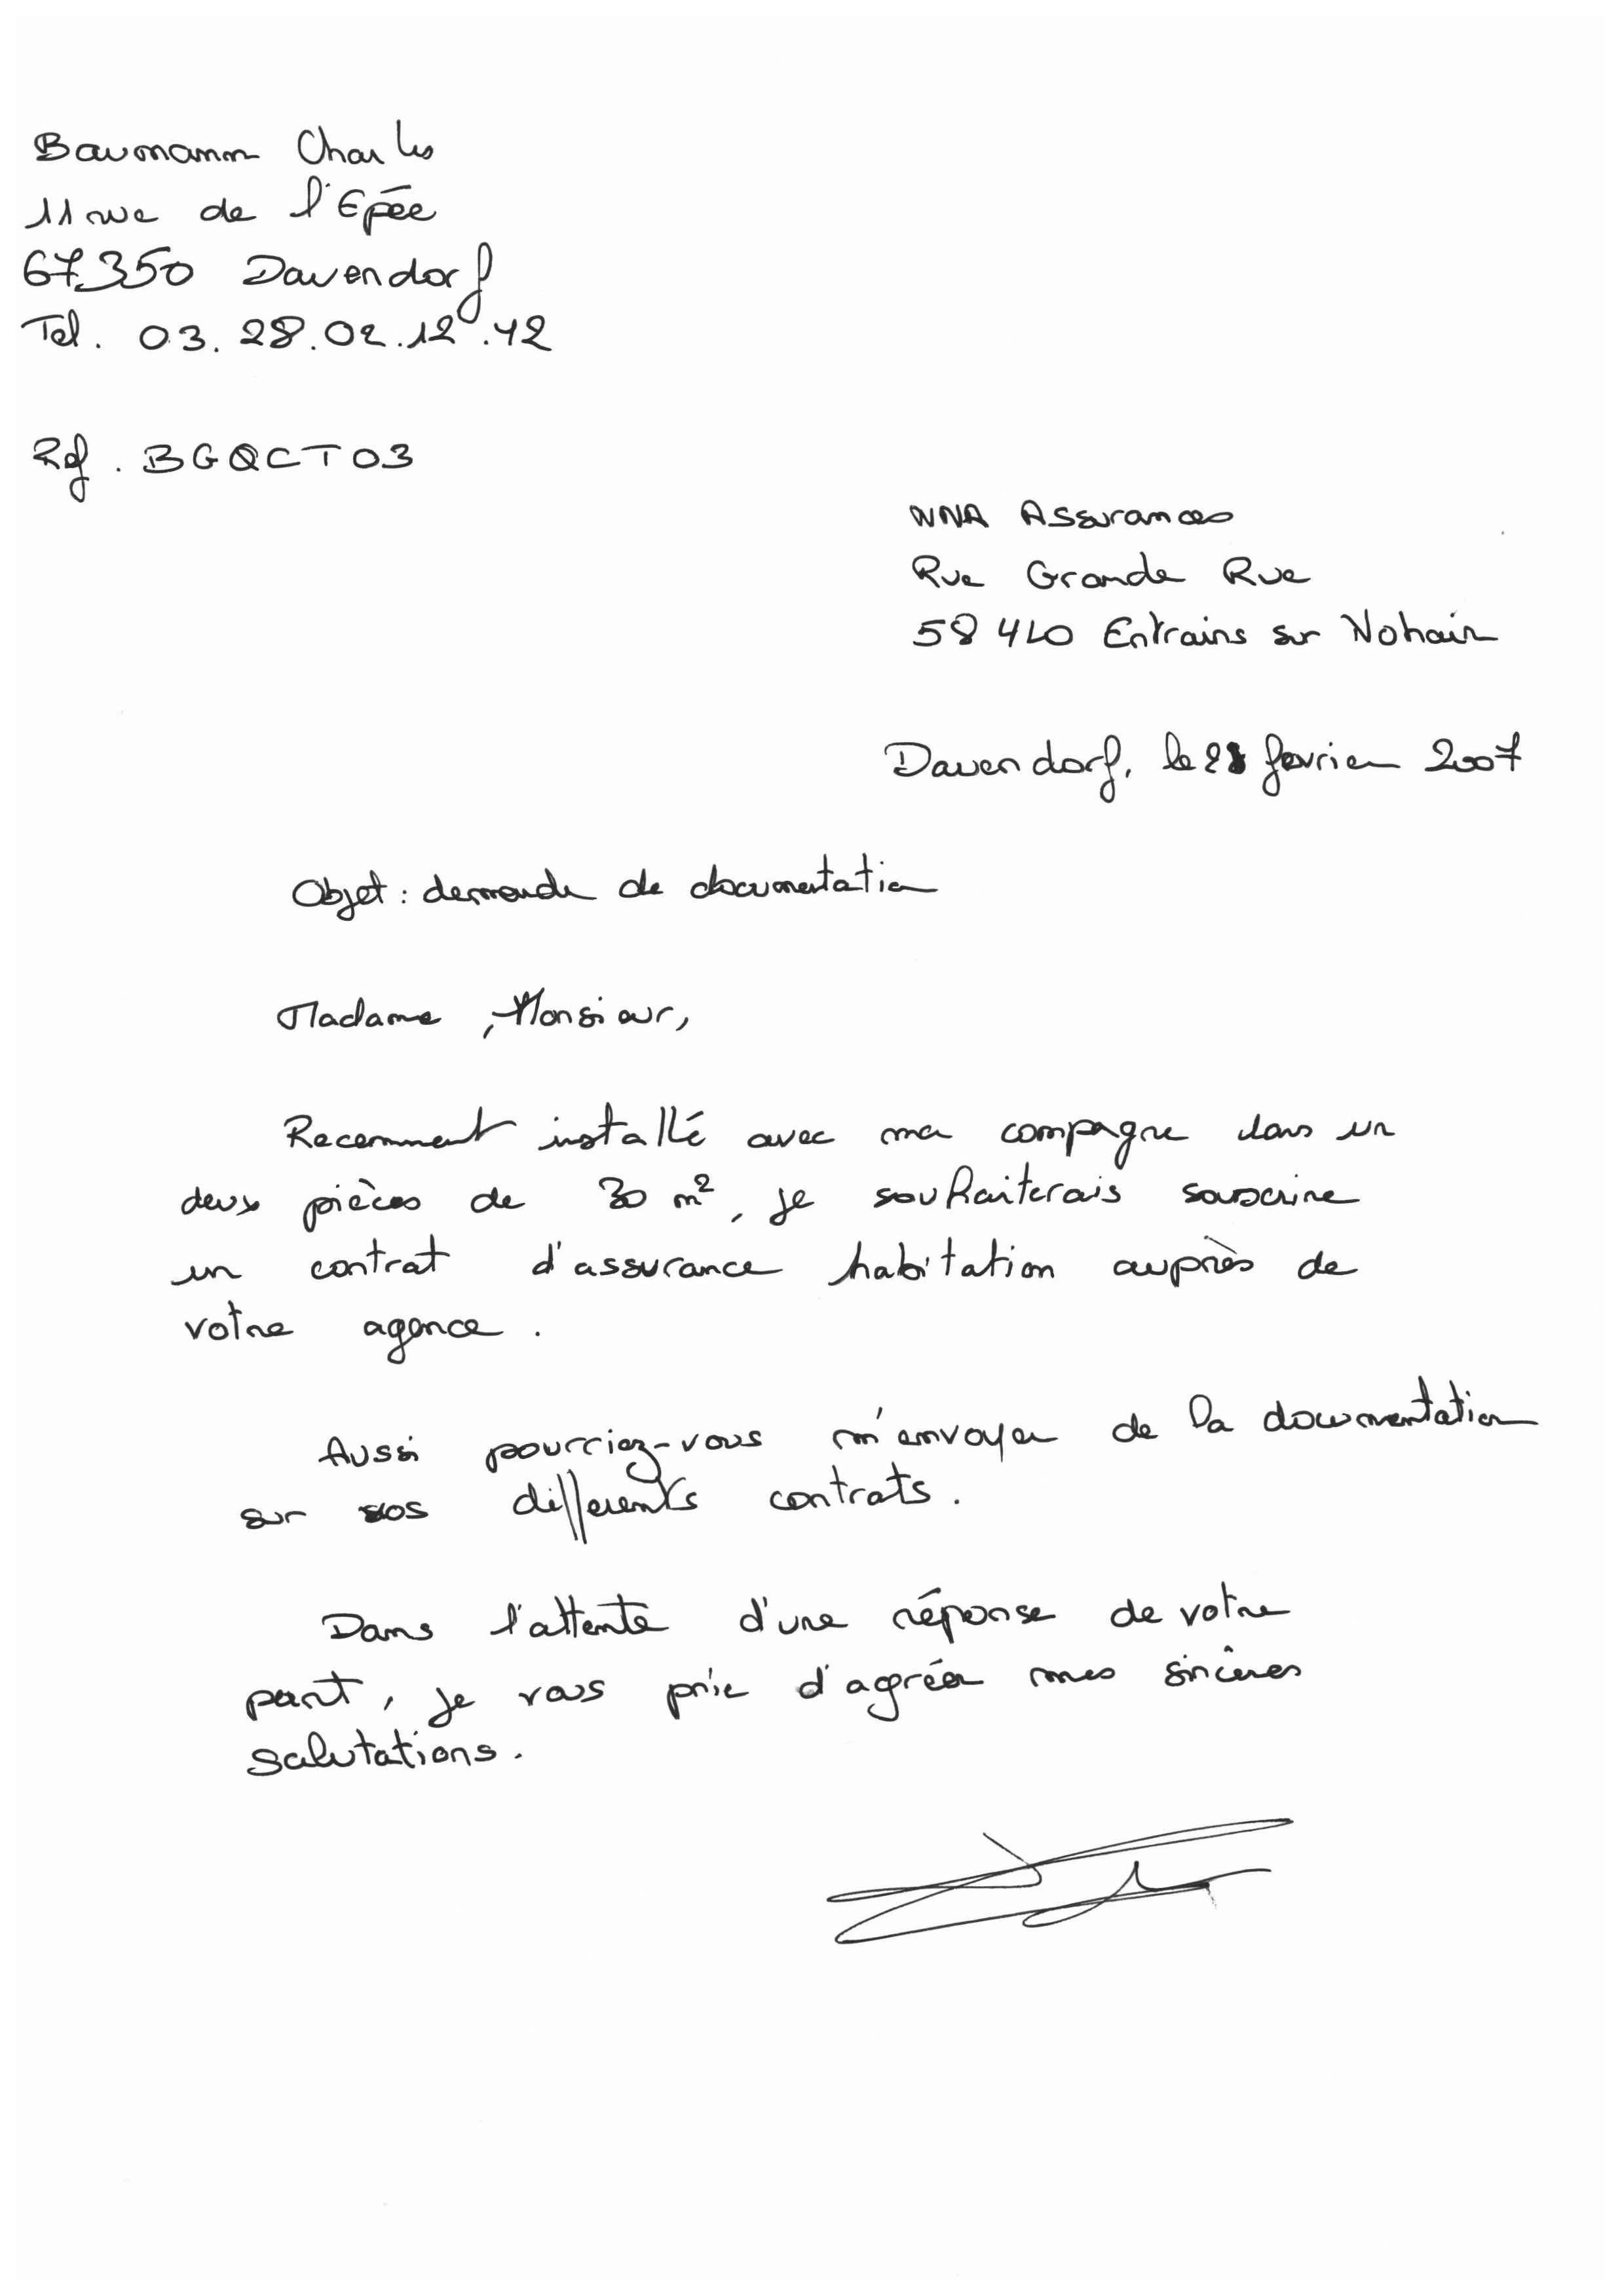 Baumann Charles
11 rue de l'Epée
67350 Dauendorf
Tel. 03.28.02.12.42
Ref. BGQCT03
WNA Assurances
Rue Grande Rue
58 410 Entrains sur Nohain
Dauendorf, le fevrier 2007
Objet : demande de documentation
Madame, Monsieur,
Recemment installé avec ma compagne dans un
deux pièces de 30 m², je souhaiterais souscrire
un contrat d'assurance habitation auprès de
votre agence.
Aussi pourriez-vous m'envoyer de la documentation
sur vos differents contrats.
Dans l'attente d'une réponse de votre
part, je vous prie d'agréer mes sincères
salutations.